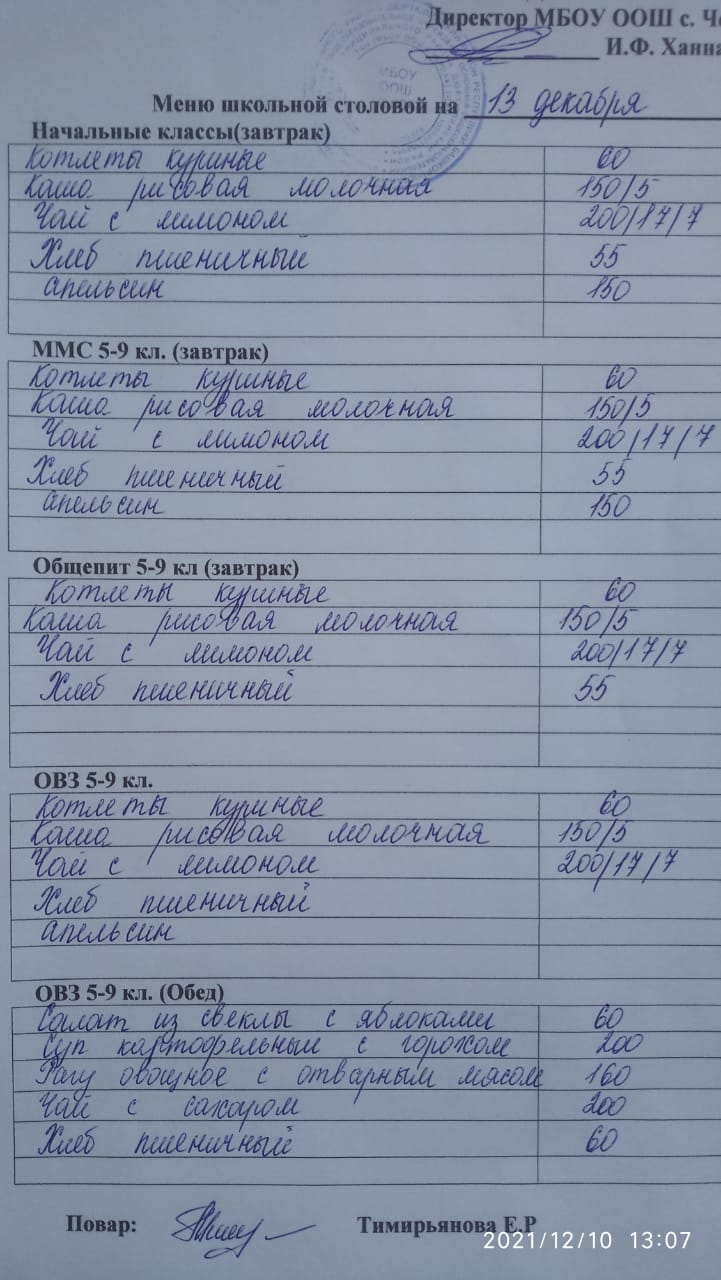 Директор МБОУ ООШ с.
И.Ф.
МБОУ
ООШ
Меню школьной столовой на 13 декабря
Начальные классы(завтрак)
Котлеты куриные 60
Каша рисовая молочная 150/5
Чай с лимоном 200/17/7
Хлеб пшеничный 55
апельсин 150
ММС 5-9 кл. (завтрак)
Котлеты куриные 60
Каша рисовая молочная 150/5
Чай с лимоном 200/17/7
Хлеб пшеничный 55
апельсин 150
Общепит 5-9 кл (завтрак)
Котлеты куриные 60
Каша рисовая молочная 150/5
Чай с лимоном 200/17/7
Хлеб пшеничный 55
ОВЗ 5-9 кл.
Котлеты куриные 60
Каша рисовая молочная 150/5
Чай с лимоном 200/17/7
Хлеб пшеничный
апельсин
ОВЗ 5-9 кл. (Обед)
Салат из свеклы с яблоками 60
Суп картофельный с горохом 200
Рагу овощное с отварным мясом 160
Чай с сахаром 200
Хлеб пшеничный 60
Повар: Тимирьянова Е.Р
2021/12/10 13:07